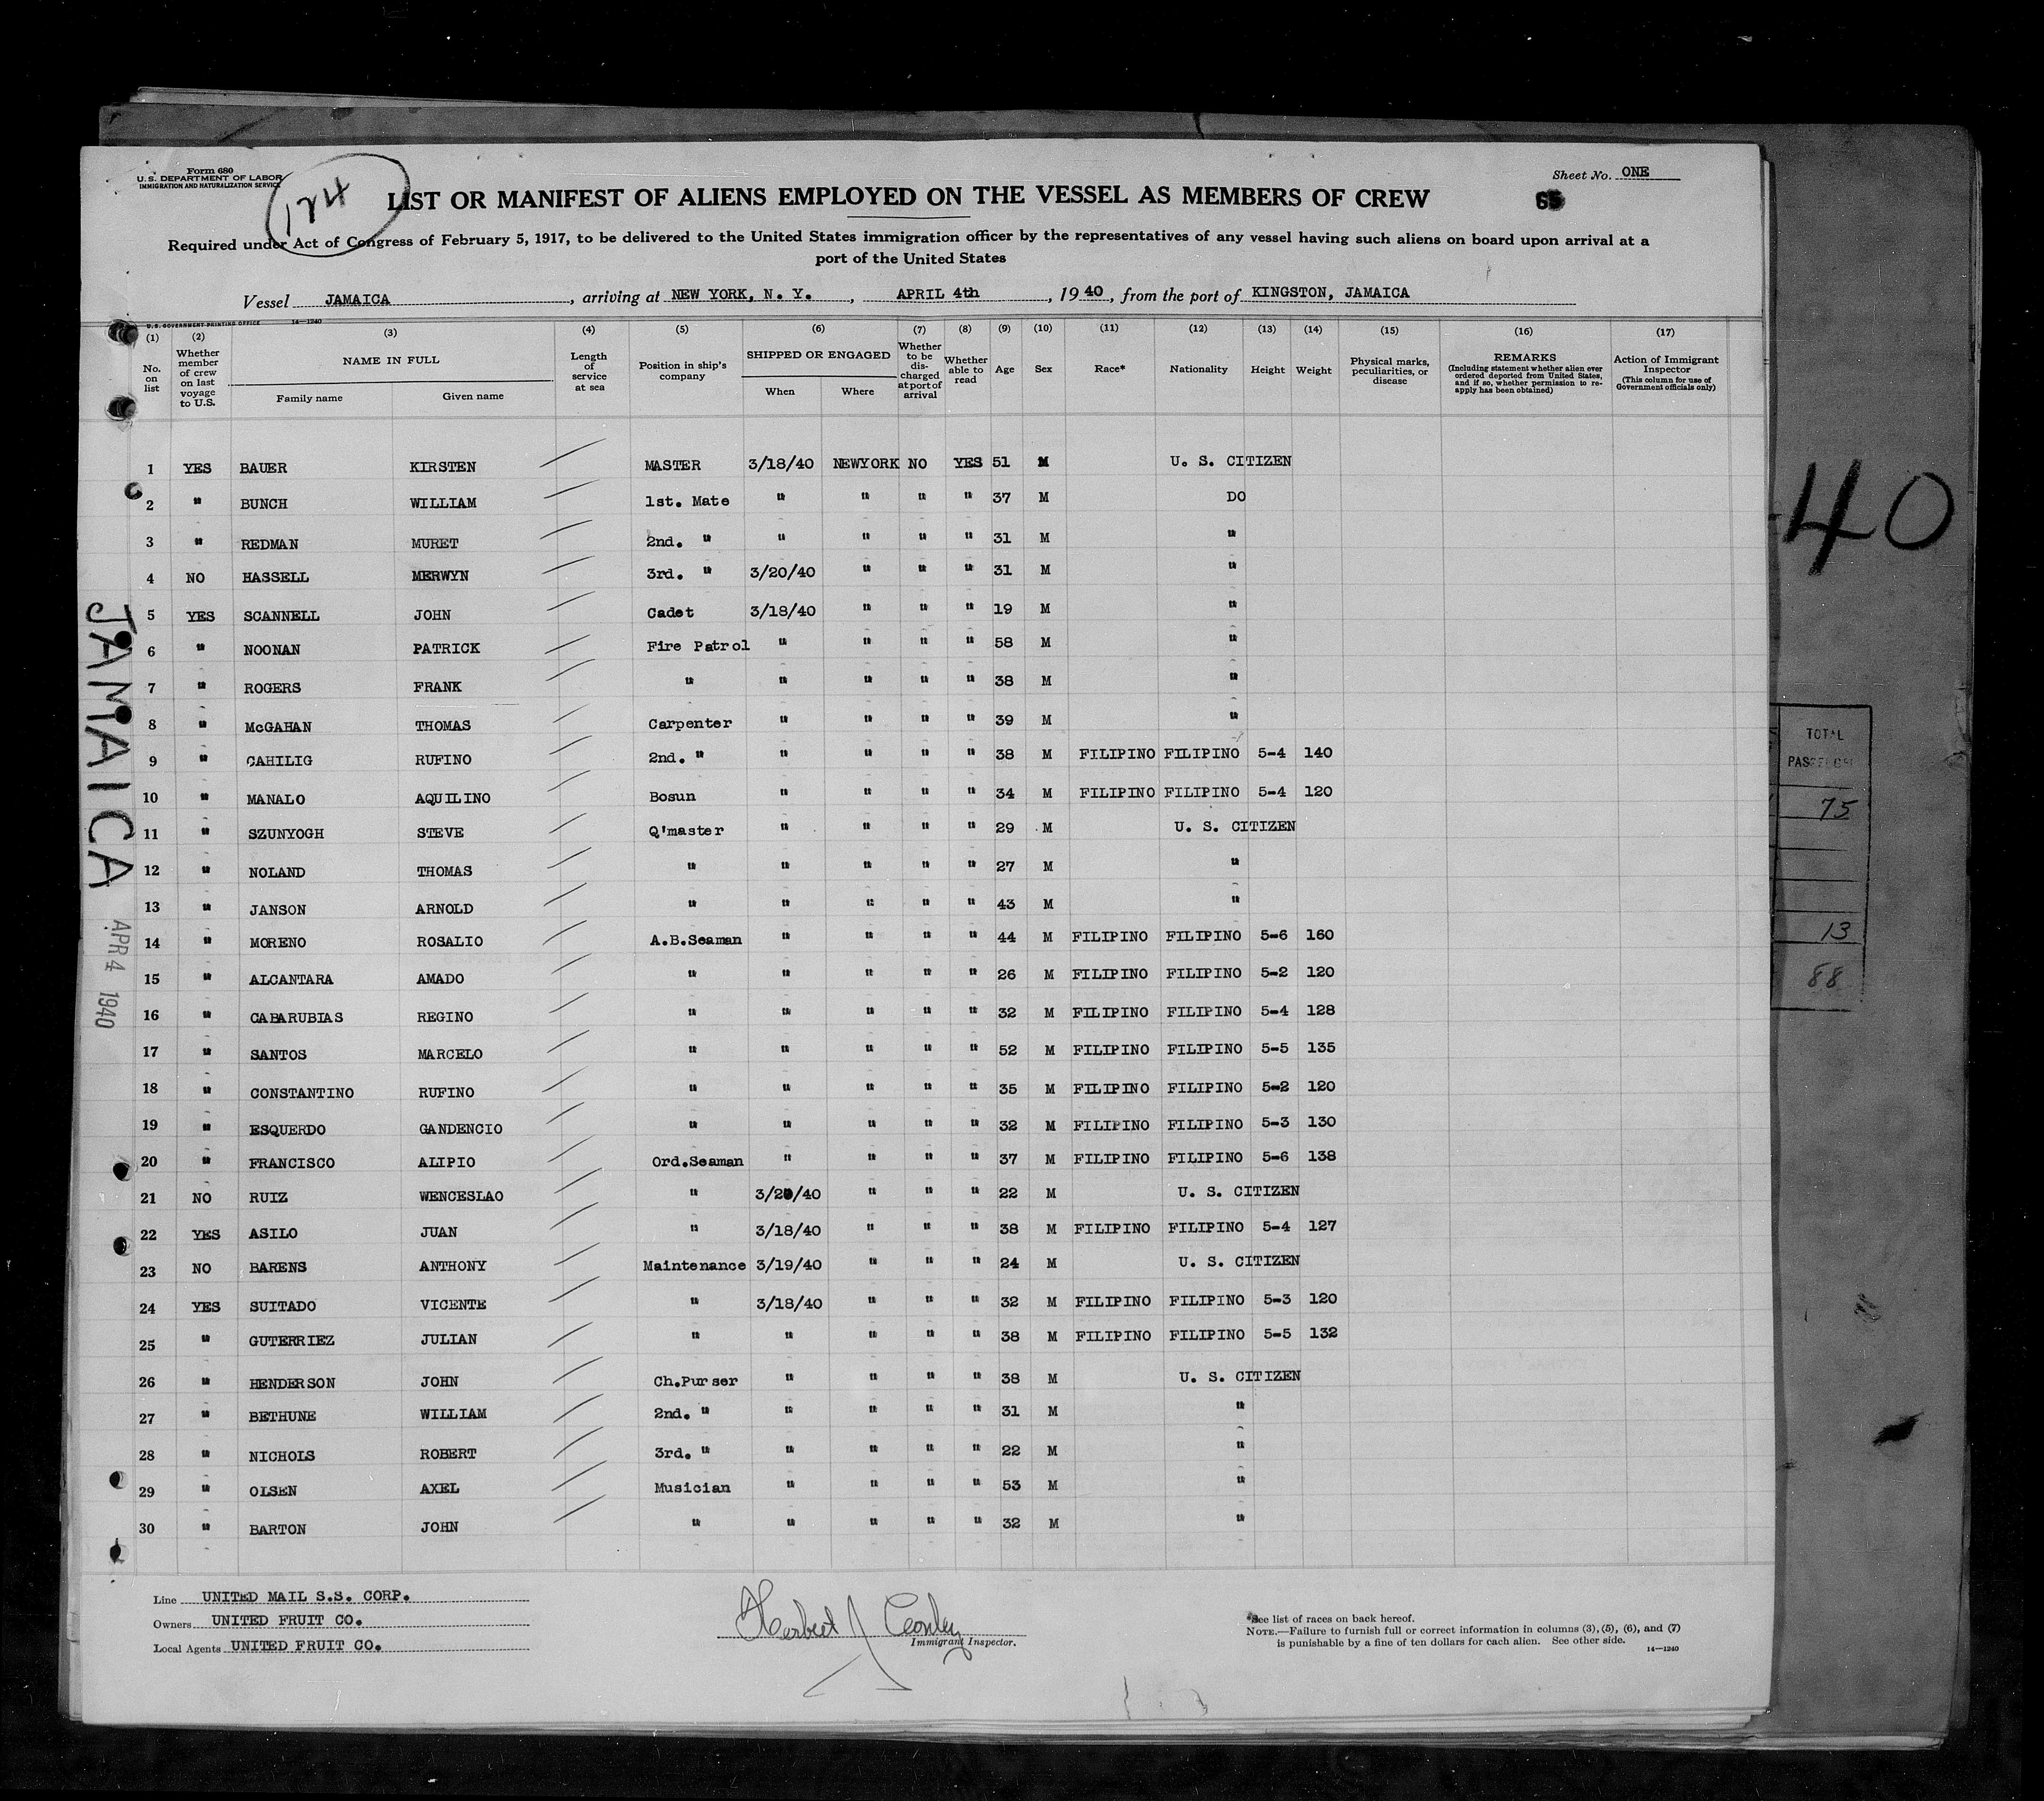 Form 680
U. S. DEPARTMENT OF LABOR
IMMIGRATION AND NATURALIZATION SERVICE
124
Sheet No. ONE
LIST OR MANIFEST OF ALIENS EMPLOYED ON THE VESSEL AS MEMBERS OF CREW
Required under Act of Congress of February 5, 1917, to be delivered to the United States immigration officer by the representatives of any vessel having such aliens on board upon arrival at a
port of the United States
Vessel JAMAICA, arriving at NEW YORK, N. Y., APRIL 4th, 1940, from the port of KINGSTON, JAMAICA
U. S. GOVERNMENT PRINTING OFFICE 14—1240
(1) (2) (3) (4) (5) (6) (7) (8) (9) (10) (11) (12) (13) (14) (15) (16) (17)
No. on list
Whether member of crew on last voyage to U.S.
NAME IN FULL
Family name Given name
Length of service at sea
Position in ship's company
SHIPPED OR ENGAGED
When Where
Whether to be discharged at port of arrival
Whether able to read
Age
Sex
Race*
Nationality
Height
Weight
Physical marks, peculiarities, or disease
REMARKS
(Including statement whether alien ever ordered deported from United States, and if so, whether permission to reapply has been obtained)
Action of Immigrant Inspector
(This column for use of Government officials only)
1 YES BAUER KIRSTEN MASTER 3/18/40 NEWYORK NO YES 51 M U. S. CITIZEN
2 " BUNCH WILLIAM 1st. Mate " " " " 37 M DO
3 " REDMAN MURET 2nd. " " " " " 31 M "
4 NO HASSELL MERWYN 3rd. " 3/20/40 " " " 31 M "
5 YES SCANNELL JOHN Cadet 3/18/40 " " " 19 M "
6 " NOONAN PATRICK Fire Patrol " " " " 58 M "
7 " ROGERS FRANK " " " " " 38 M "
8 " McGAHAN THOMAS Carpenter " " " " 39 M "
9 " CAHILIG RUFINO 2nd. " " " " " 38 M FILIPINO FILIPINO 5-4 140
10 " MANALO AQUILINO Bosun " " " " 34 M FILIPINO FILIPINO 5-4 120
11 " SZUNYOGH STEVE Q'master " " " " 29 M U. S. CITIZEN
12 " NOLAND THOMAS " " " " " 27 M "
13 " JANSON ARNOLD " " " " " 43 M "
14 " MORENO ROSALIO A.B.Seaman " " " " 44 M FILIPINO FILIPINO 5-6 160
15 " ALCANTARA AMADO " " " " " 26 M FILIPINO FILIPINO 5-2 120
16 " CABARUBIAS REGINO " " " " " 32 M FILIPINO FILIPINO 5-4 128
17 " SANTOS MARCELO " " " " " 52 M FILIPINO FILIPINO 5-5 135
18 " CONSTANTINO RUFINO " " " " " 35 M FILIPINO FILIPINO 5-2 120
19 " ESQUERDO GANDENCIO " " " " " 32 M FILIPINO FILIPINO 5-3 130
20 " FRANCISCO ALIPIO Ord.Seaman " " " " 37 M FILIPINO FILIPINO 5-6 138
21 NO RUIZ WENCESLAO " 3/20/40 " " " 22 M U. S. CITIZEN
22 YES ASILO JUAN " 3/18/40 " " " 38 M FILIPINO FILIPINO 5-4 127
23 NO BARENS ANTHONY Maintenance 3/19/40 " " " 24 M U. S. CITIZEN
24 YES SUITADO VICENTE " 3/18/40 " " " 32 M FILIPINO FILIPINO 5-3 120
25 " GUTERRIEZ JULIAN " " " " " 38 M FILIPINO FILIPINO 5-5 132
26 " HENDERSON JOHN Ch.Purser " " " " 38 M U. S. CITIZEN
27 " BETHUNE WILLIAM 2nd. " " " " " 31 M "
28 " NICHOLS ROBERT 3rd. " " " " " 22 M "
29 " OLSEN AXEL Musician " " " " 53 M "
30 " BARTON JOHN " " " " " 32 M "
JAMAICA
APR 4 1940
Line UNITED MAIL S.S. CORP.
Owners UNITED FRUIT CO.
Local Agents UNITED FRUIT CO.
Herbert J Conley
Immigrant Inspector.
*See list of races on back hereof.
NOTE.—Failure to furnish full or correct information in columns (3), (5), (6), and (7)
is punishable by a fine of ten dollars for each alien. See other side.
14—1240
40
TOTAL
75
13
88